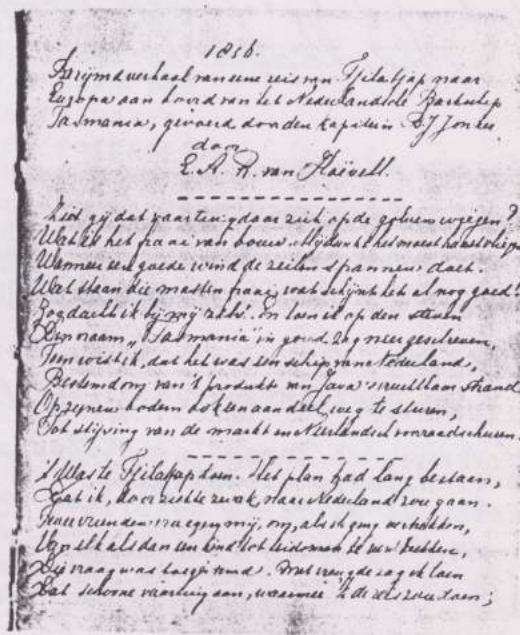 1856.
Berijmd verhaal van eene reis van Tjilatjap naar
Europa aan boord van het Nederlandsche Barkschip
Tasmania, gevoerd door den kapitein D. J. Jonker
door
E. A. R. van Hoëvell.
Ziet gij dat vaartuig daar zich op de golven wiegen?
Wat is het fraai van bouw. Mij dunkt het moest haast vliegen
Wanneer een goede wind de zeilen spannen doet.
Wat staan die masten fraai, wat schijnt het al nog goed!
Zoo dacht ik bij mij zelv'. En toen ik op den steven
Den naam „Tasmania" in goud zag neergeschreven,
Toen wist ik, dat het was een schip van Nederland,
Bestemd om van 't produkt van Java's vruchtbaar strand
Op zijnen bodem ook een aandeel weg te sturen,
Tot stijving van de markt en Neerlandsch voorraadschuren.
't Was te Tjilatjap toen. Het plan had lang bestaan,
Dat ik, door ziekte zwak, naar Nederland zou gaan.
Twee vrienden vroegen mij, om, als ik ging vertrekken,
Van elk alsdan een kind tot leidsman te
Die vraag was toegestemd. Met vreugde zag ik toen
Dat schoone vaartuig aan, waarmee 'k de reis zou doen;